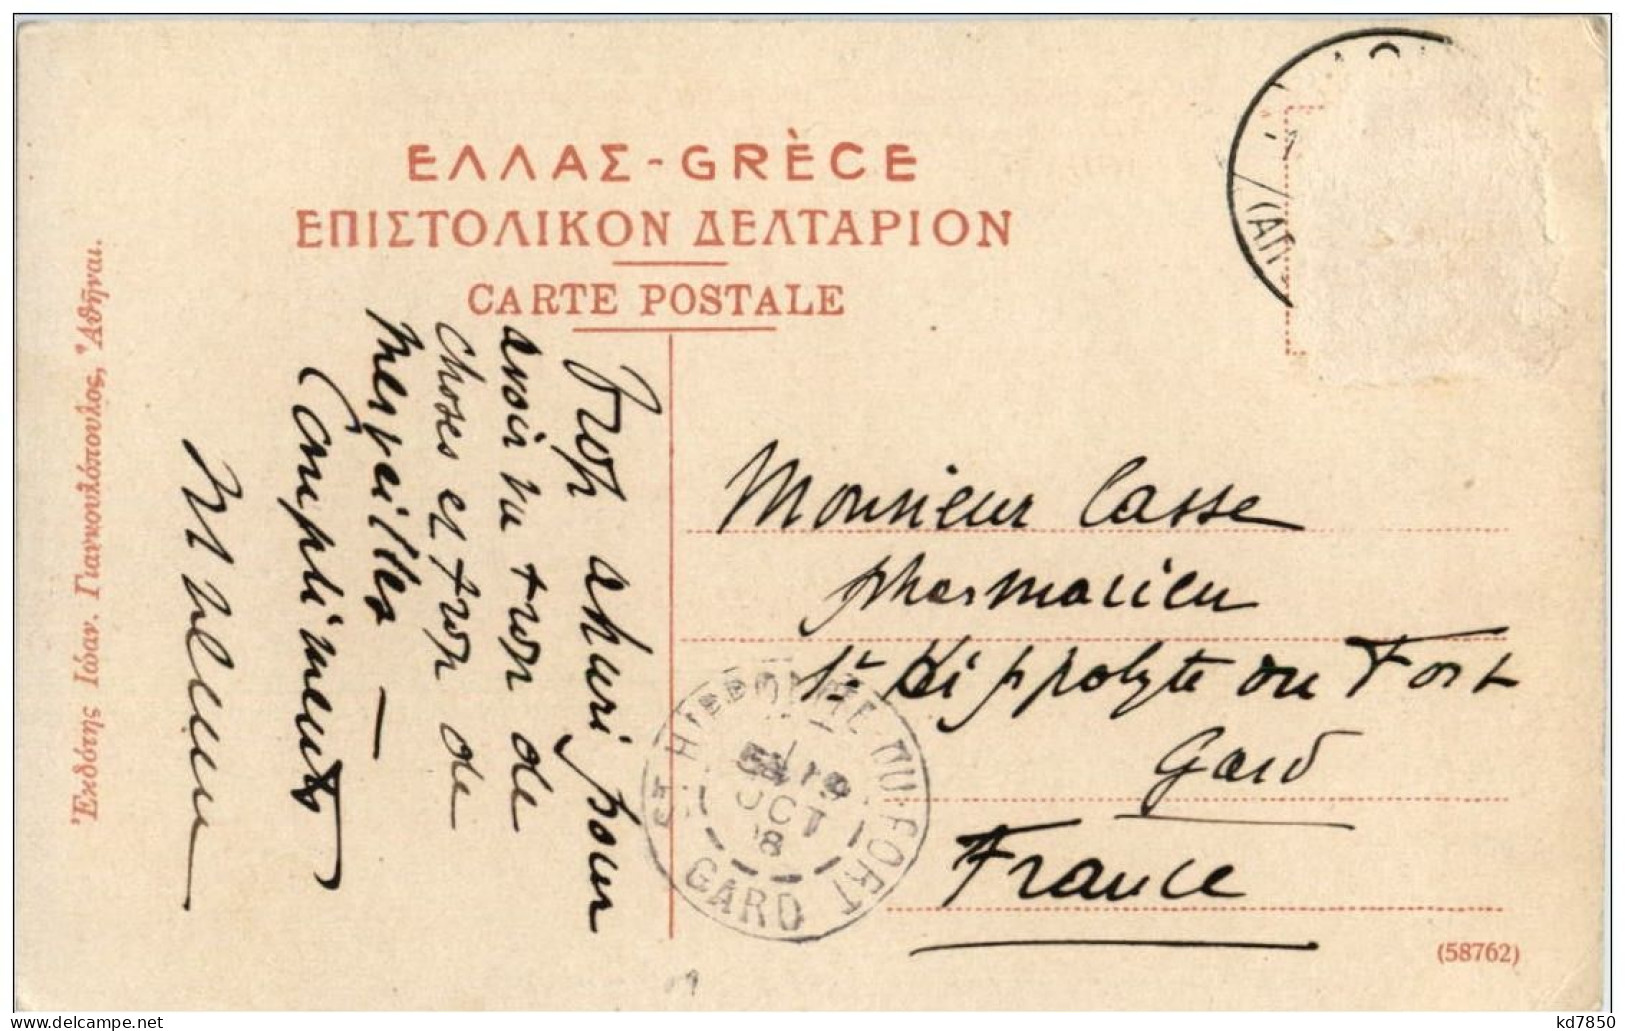 ΕΛΛΑΣ - GRÈCE
ΕΠΙΣΤΟΛΙΚΟΝ ΔΕΛΤΑΡΙΟΝ
CARTE POSTALE
Ἐκδότης Ἰωαν. Γιαννουλόπουλος, Ἀθῆναι.
Trop ahuri pour
avoir vu trop de
choses et trop de
merveilles —
Compliments
Monsieur Casse
pharmacien
St Hippolyte du Fort
Gard
France
ST HIPPOLYTE-DU-FORT
OCT
GARD
(58762)
kd7850